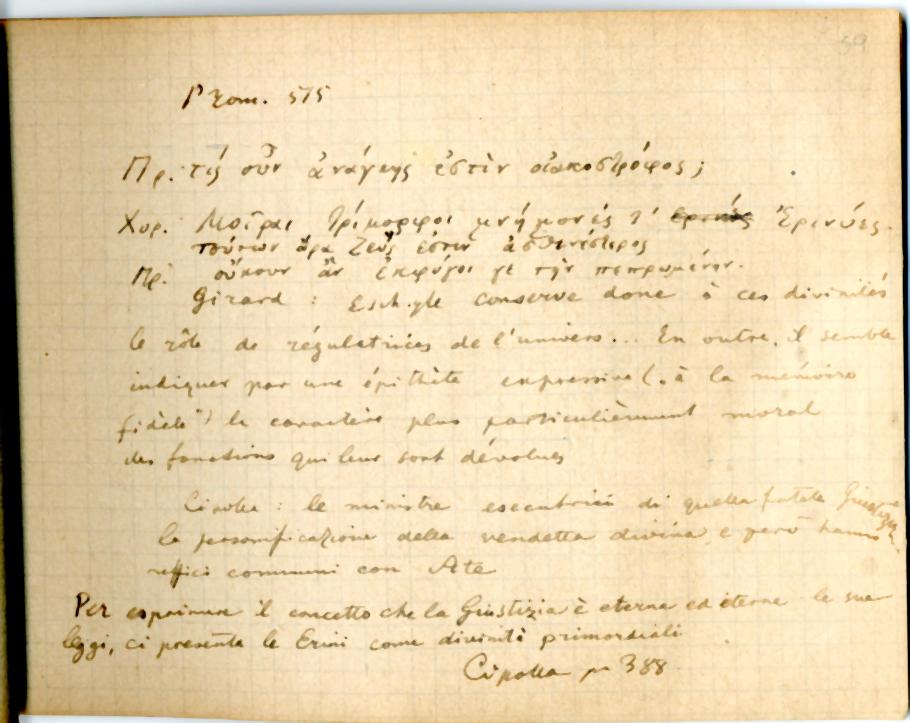 59
Prom. 515
Πρ. τίς οὖν ἀνάγκης ἐστὶν οἰακοστρόφος;
Χορ. Μοῖραι τρίμορφοι μνήμονές τ' Ἐρινύες.
τούτων ἄρα Ζεύς ἐστιν ἀσθενέστερος
Πρ. οὔκουν ἂν ἐκφύγοι γε τὴν πεπρωμένην.
Girard : Eschyle conserve donc à ces divinités
le rôle de régulatrices de l'univers... En outre, il semble
indiquer par une épithète expressive ("à la mémoire
fidèle") le caractère plus particulièrement moral
des fonctions qui leur sont dévolues
Cipolla : le ministre esecutrici di quella fatale Giustizia
la personificazione della vendetta divina e però hanno
uffici communi con Ate
Per esprimere il concetto che la Giustizia è eterna ed eterne le sue
leggi, ci presenta le Erini come divinità primordiali
Cipolla p 388